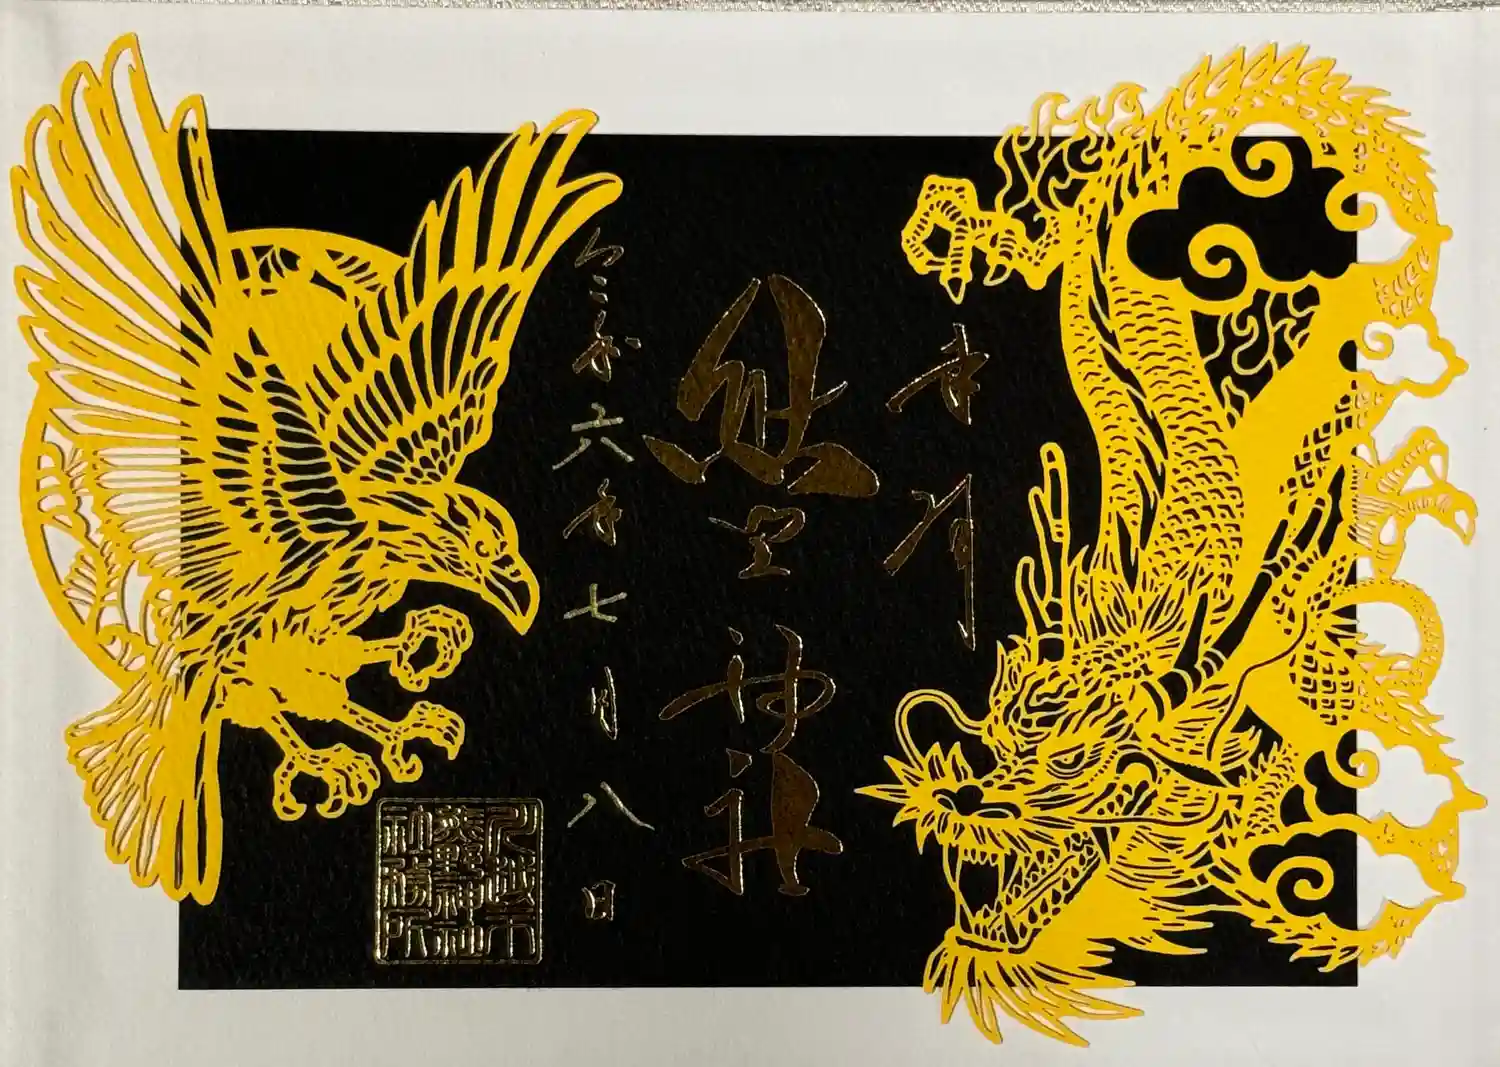 奉拝
熊野神社
令和六年七月八日
川越市
熊野神社
社務所